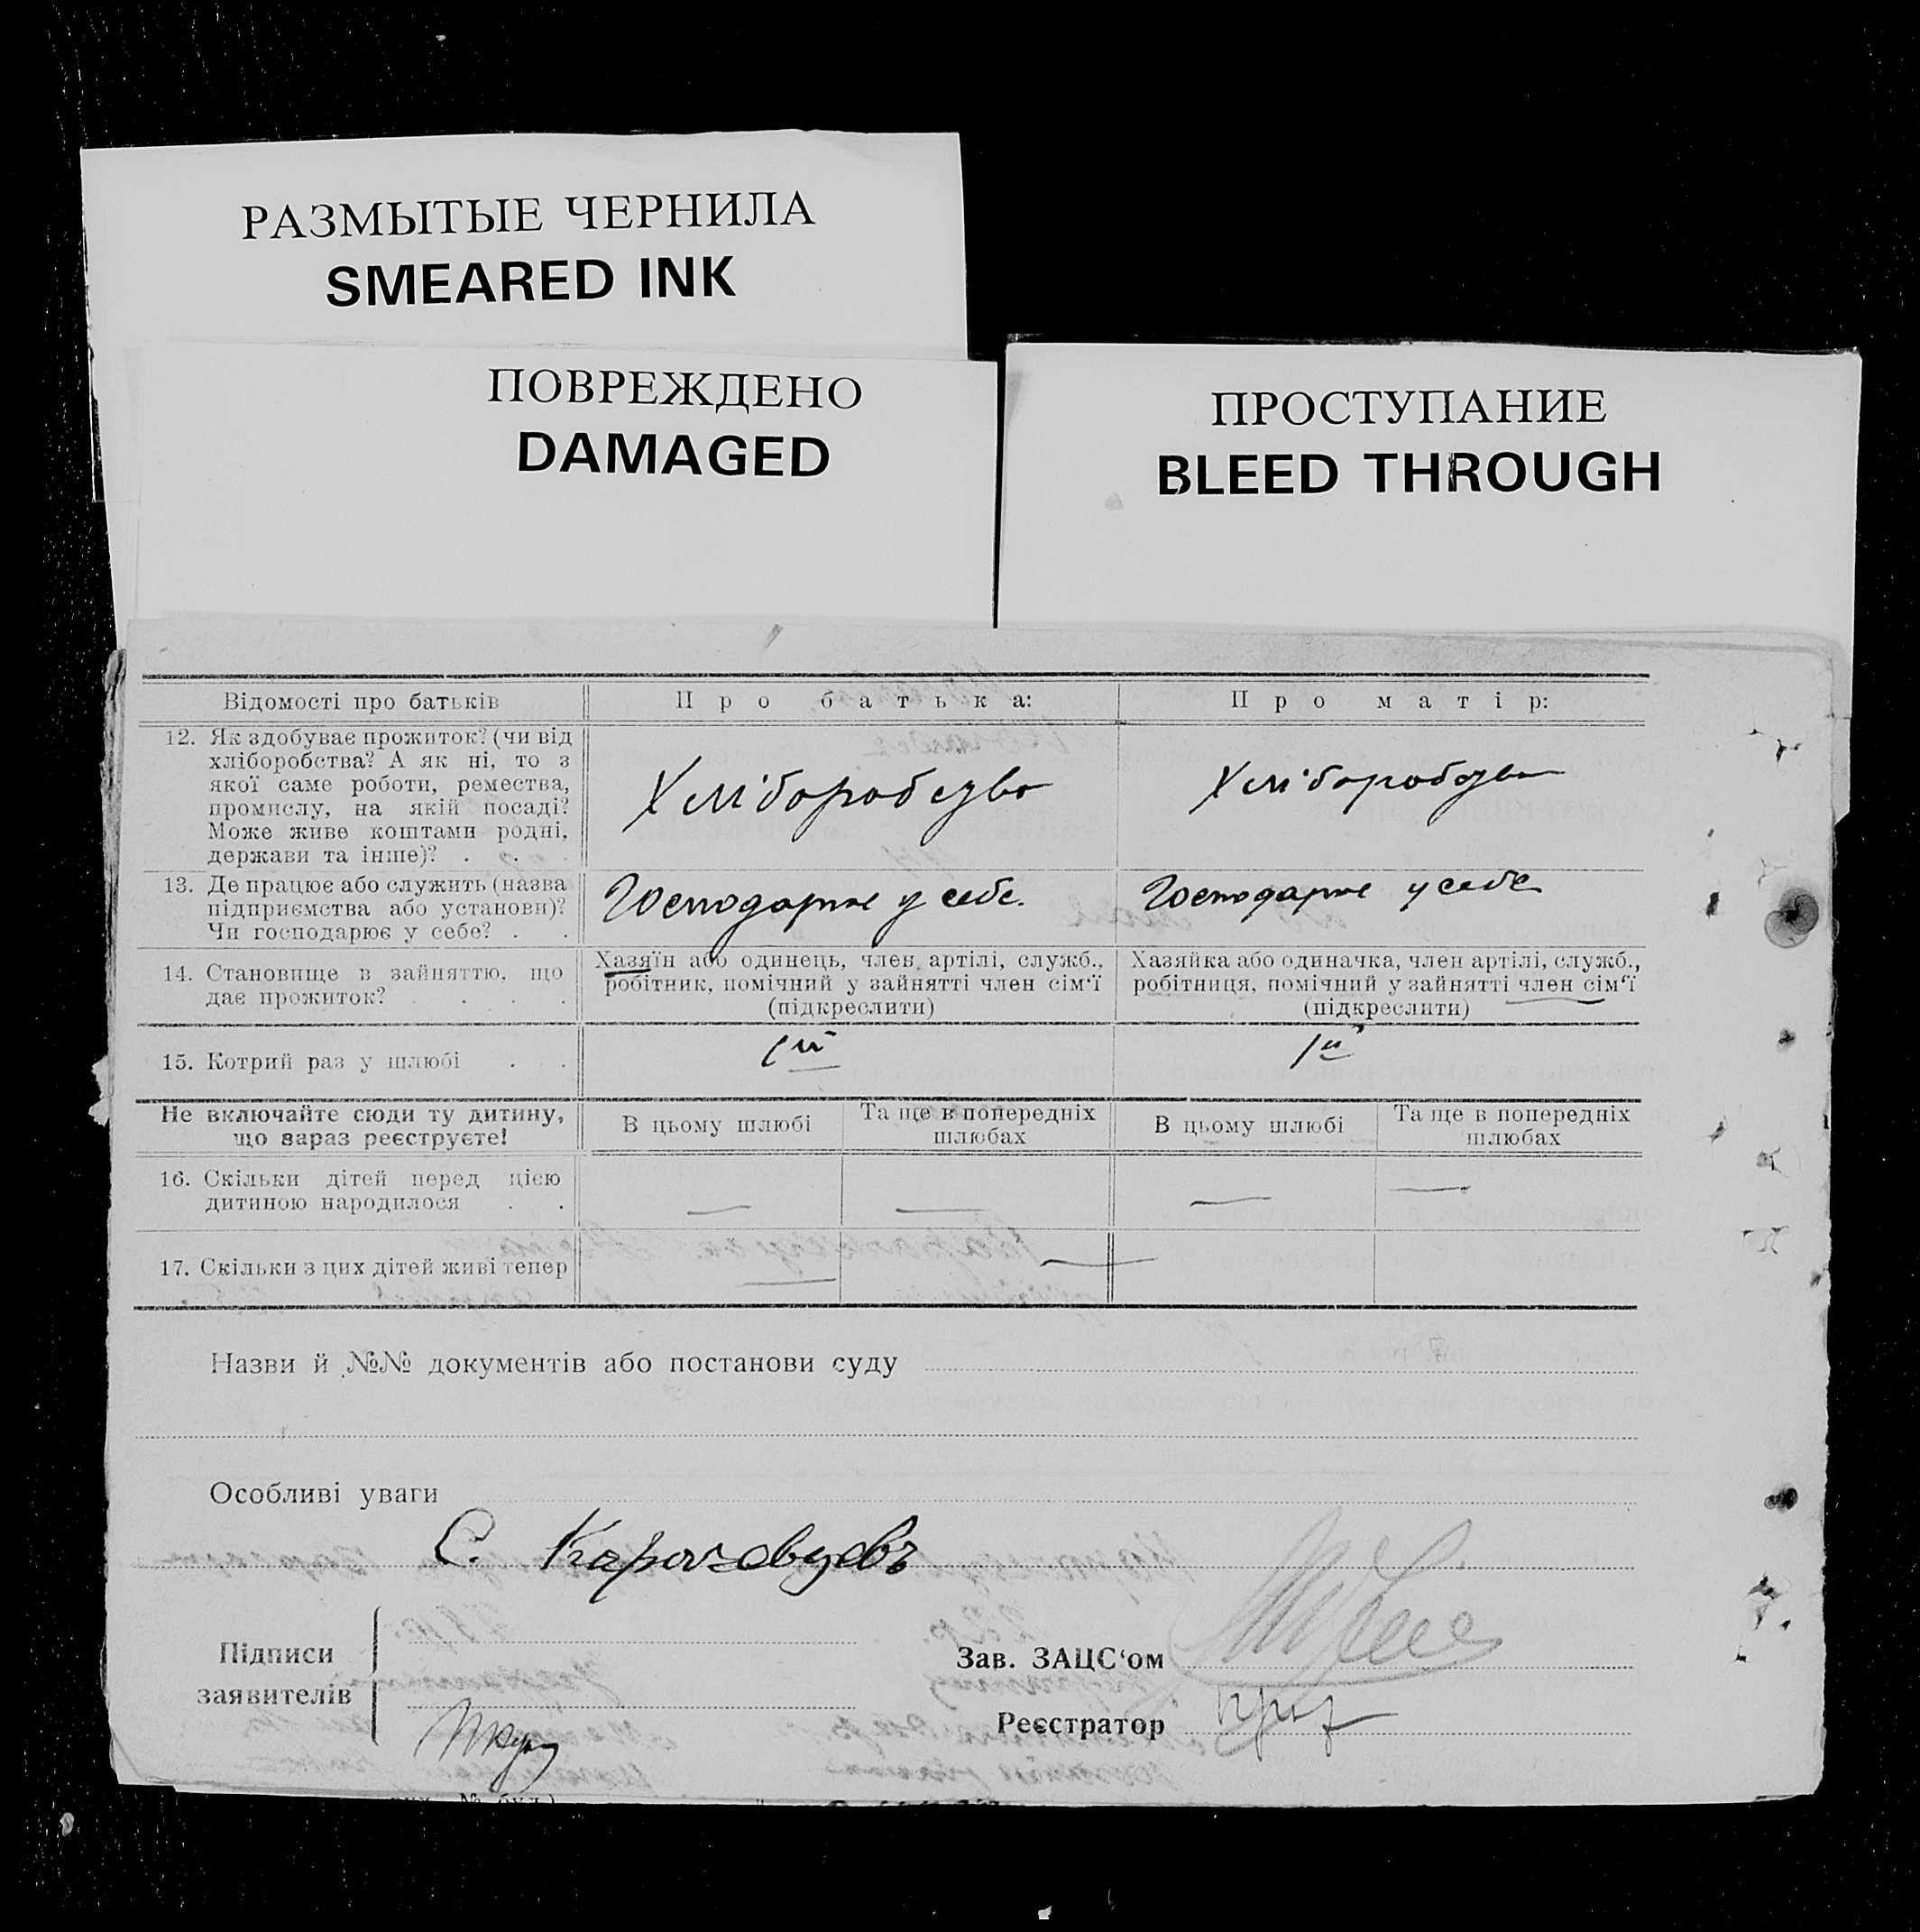 РАЗМЫТЫЕ ЧЕРНИЛА
SMEARED INK
ПОВРЕЖДЕНО
DAMAGED
ПРОСТУПАНИЕ
BLEED THROUGH
Відомості про батьків
Про батька:
Про матір:
12. Як здобуває прожиток? (чи від
хліборобства? А як ні, то з
якої саме роботи, ремества,
промислу, на якій посаді?
Може живе коштами родні,
держави та інше)? . . .
Хліборобство
Хліборобство
13. Де працює або служить (назва
підприємства або установи)?
Чи господарює у себе? . .
Господарює у себе.
Господарює у себе
14. Становище в зайняттю, що
дає прожиток? . . . .
Хазяїн або одинець, член артілі, служб.,
робітник, помічний у зайнятті член сім'ї
(підкреслити)
Хазяйка або одиначка, член артілі, служб.,
робітниця, помічний у зайнятті член сім'ї
(підкреслити)
15. Котрий раз у шлюбі . .
1й
1й
Не включайте сюди ту дитину,
що зараз реєструєте!
В цьому шлюбі
Та ще в попередніх
шлюбах
В цьому шлюбі
Та ще в попередніх
шлюбах
16. Скільки дітей перед цією
дитиною народилося . .
— — — —
17. Скільки з цих дітей живі тепер
— —
Назви й №№ документів або постанови суду
Особливі уваги
С.
Підписи
заявителів
Зав. ЗАЦС‘ом
Реєстратор